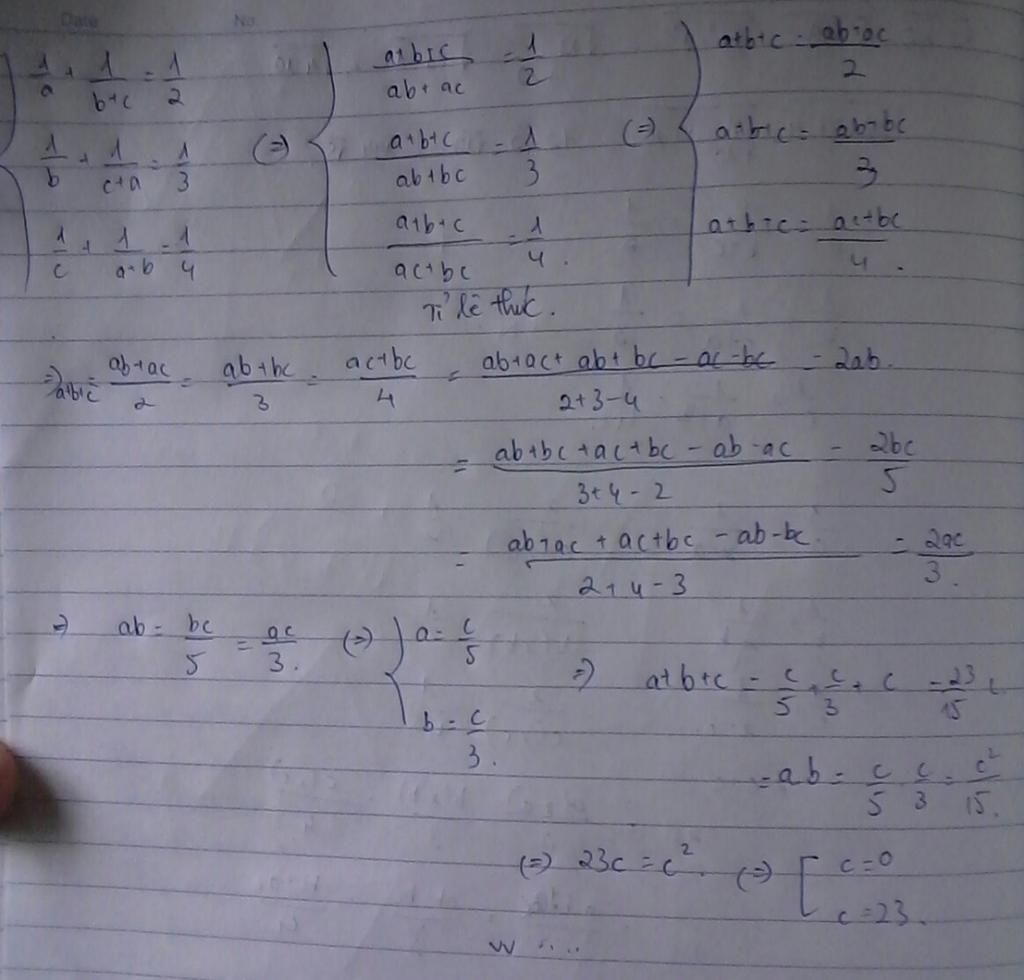 Date No
1/a + 1/(b+c) = 1/2 (a+b+c)/(ab+ac) = 1/2 a+b+c = (ab+ac)/2
1/b + 1/(c+a) = 1/3 (=) (a+b+c)/(ab+bc) = 1/3 (=) a+b+c = (ab+bc)/3
1/c + 1/(a+b) = 1/4 (a+b+c)/(ac+bc) = 1/4. a+b+c = (ac+bc)/4.
Tỉ lệ thức.
=) a+b+c = (ab+ac)/2 = (ab+bc)/3 = (ac+bc)/4 = (ab+ac+ab+bc-ac-bc)/(2+3-4) = 2ab.
= (ab+bc+ac+bc-ab-ac)/(3+4-2) = 2bc/5
= (ab+ac+ac+bc-ab-bc)/(2+4-3) = 2ac/3.
=) ab = bc/5 = ac/3. (=) { a = c/5
b = c/3.
=) a+b+c = c/5 + c/3 + c = 23/15 c
= ab = c/5 c/3 = c²/15.
(=) 23c = c². (=) [ c=0
c=23.